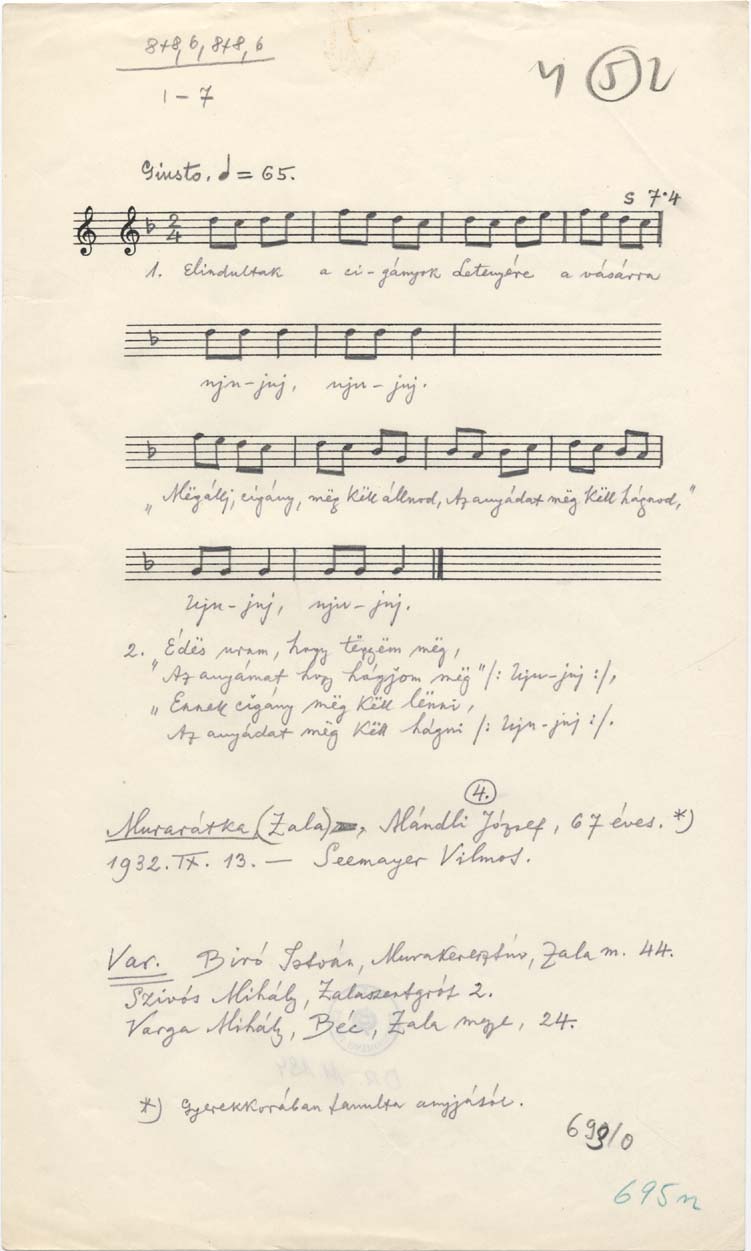 8+8, 6, 8+8, 6
1-7
4 5 2
Giusto. ♩ = 65.
S 7·4
2/4
1. Elindultak a ci-gányok Letenyére a vásárra
uju-juj, uju-juj.
"Mëgállj, cigány, mëg këll állnod, Az anyádat mëg këll hágnod,"
Uju-juj, uju-juj.
2. Édës uram, hogy tëggyem mëg,
"Az anyámat hogy hágjom mëg" /: Uju-juj :/,
"Ennek cigány mëg këll lënni,
Az anyádat mëg këll hágni /: Uju-juj :/.
4.
Murarátka (Zala), Mándli József, 67 éves. *)
1932. IX. 13. — Seemayer Vilmos.
Var. Biró István, Murakeresztúr, Zala m. 44.
Szivós Mihály, Zalaszentgrót 2.
Varga Mihály, Béc, Zala megye, 24.
*) Gyerekkorában tanulta anyjától.
695n